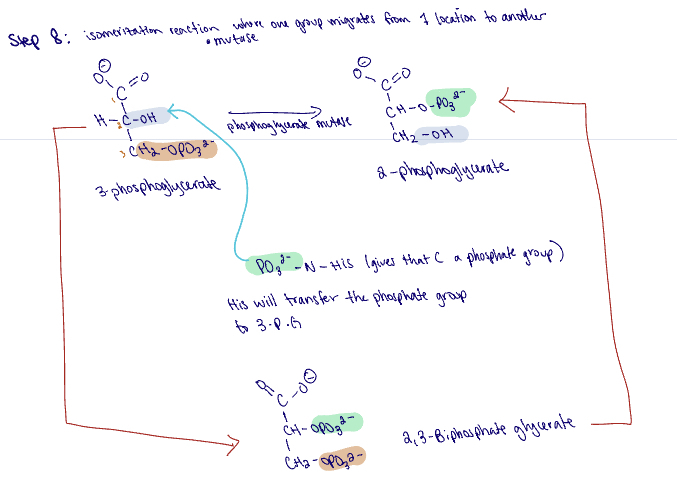 Step 8: isomerization reaction where one group migrates from 1 location to another
• mutase
⊖
O O
C
1
H-C-OH
2
3 CH2-OPO3 2-
3-phosphoglycerate
phosphoglycerate mutase
⊖
O O
C
CH-O-PO3 2-
CH2-OH
2-phosphoglycerate
PO3 2- -N-His (gives that C a phosphate group)
His will transfer the phosphate group
to 3.P.G
O O ⊖
C
CH-OPO3 2-
CH2-OPO3 2-
2,3-Biphosphate glycerate